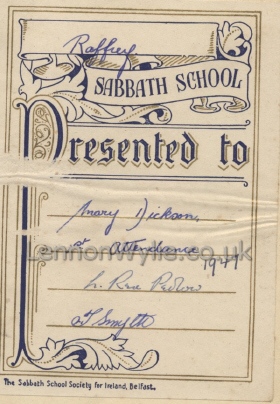 Raffrey
SABBATH SCHOOL
Presented to
Mary Dickson,
for attendance
1947
L. Rea Pedlow
T Smyth
LennonWylie.co.uk
The Sabbath School Society for Ireland, Belfast.